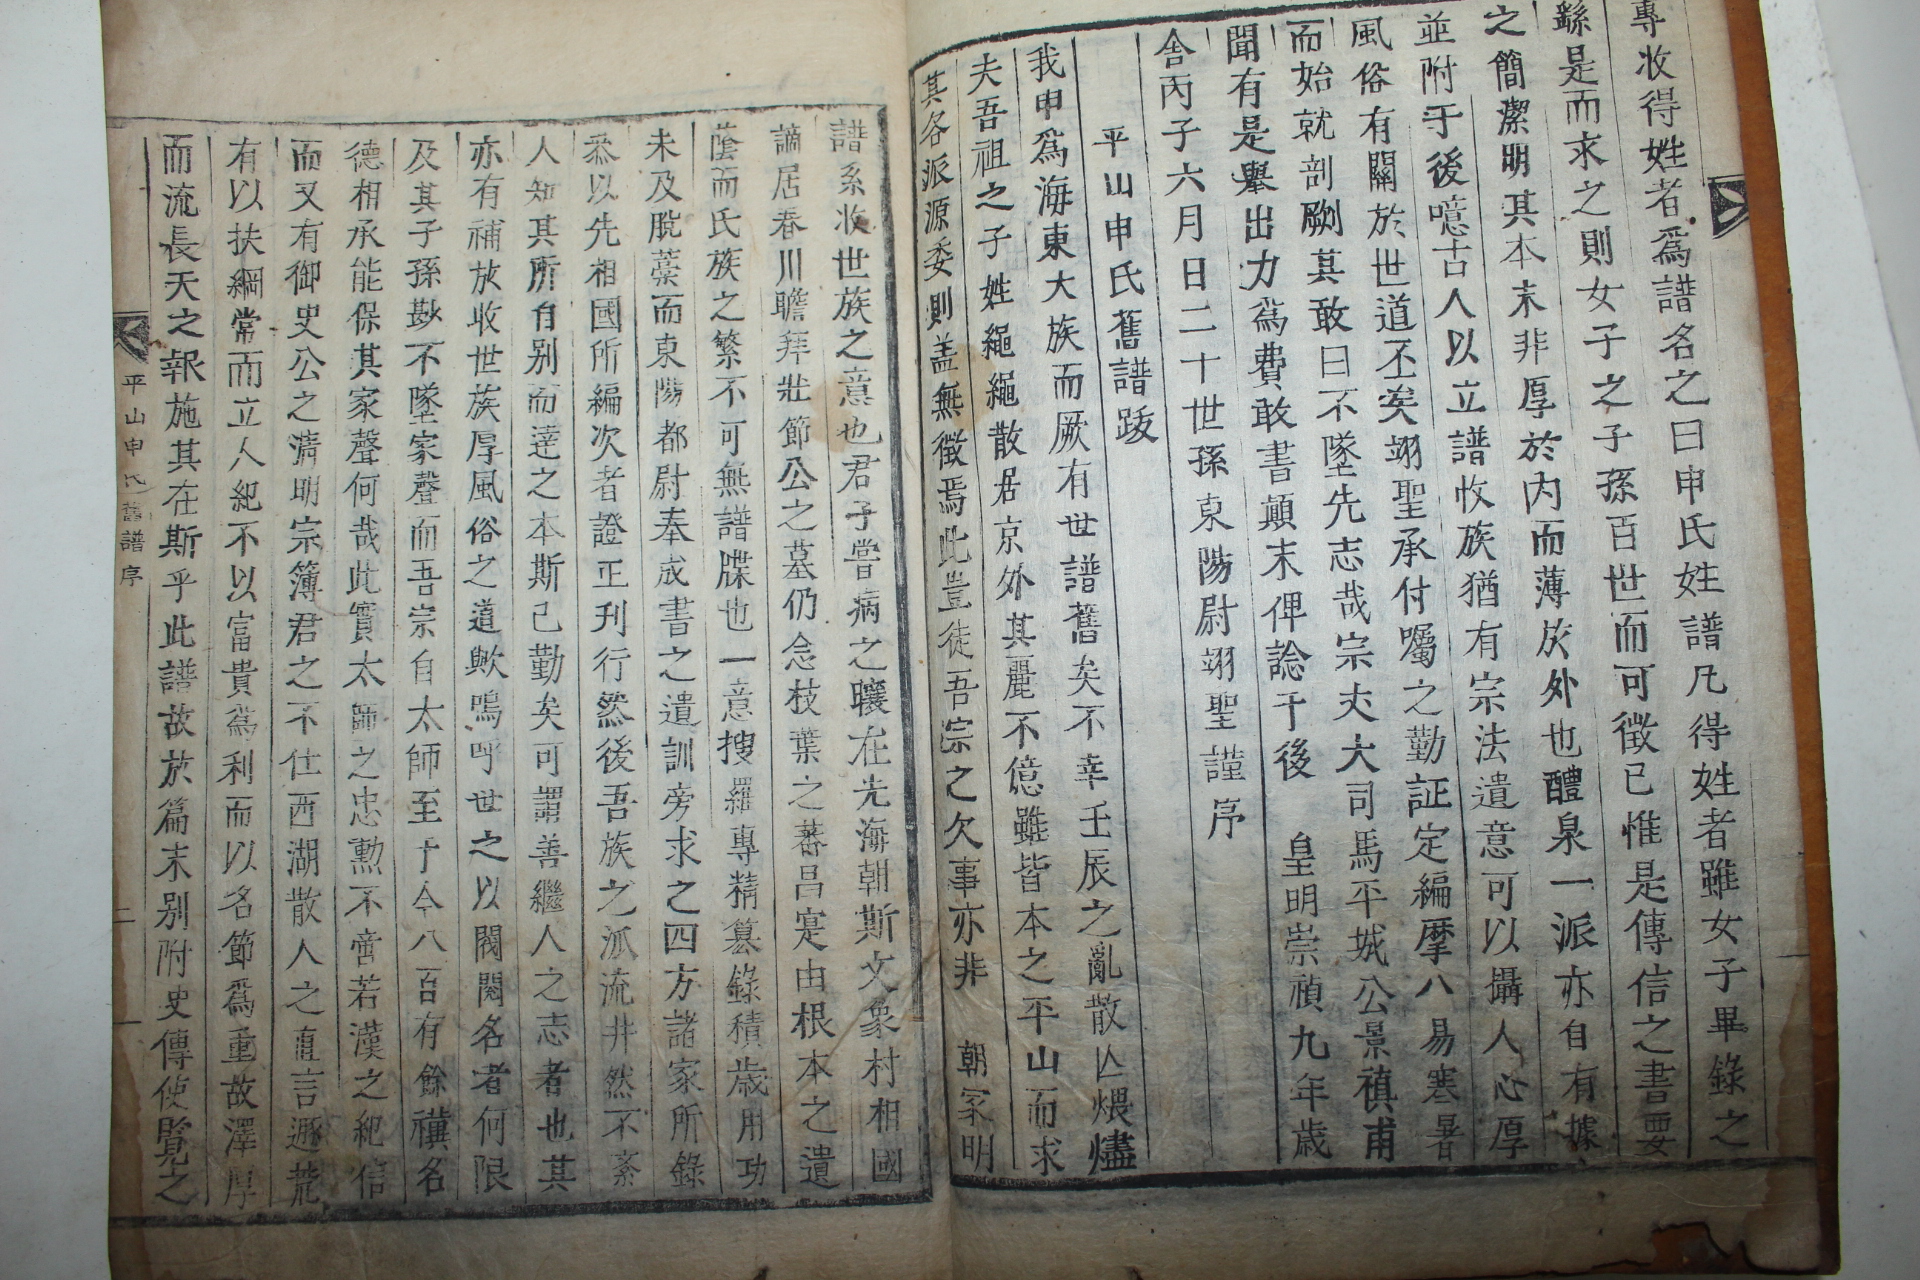 專收得姓者爲譜名之曰申氏姓譜凡得姓者雖女子畢錄之
繇是而求之則女子之子孫百世而可徵已惟是傳信之書要
之簡潔明其本末非厚於內而薄於外也醴泉一派亦自有據
並附于後噫古人以立譜收族猶有宗法遺意可以攝人心厚
風俗有關於世道丕矣翊聖承付囑之勤証定編摩八易寒暑
而始就剖劂其敢曰不墜先志哉宗丈大司馬平城公景禛甫
聞有是擧出力爲費敢書顚末俾諗于後 皇明崇禎九年歲
舍丙子六月日二十世孫東陽尉翊聖謹序
平山申氏舊譜跋
我申爲海東大族而厥有世譜舊矣不幸壬辰之亂散亾煨燼
夫吾祖之子姓繩繩散居京外其麗不億雖皆本之平山而求
其各派源委則盖無徵焉此豈徒吾宗之欠事亦非 朝家明
譜系收世族之意也君子嘗病之曩在先海朝斯文象村相國
謫居春川瞻拜壯節公之墓仍念枝葉之蕃昌寔由根本之遺
蔭而氏族之繁不可無譜牒也一意搜羅專精纂錄積歲用功
未及脫藁而東陽都尉奉成書之遺訓旁求之四方諸家所錄
叅以先相國所編次者證正刊行然後吾族之派流井然不紊
人知其所自别而達之本斯已勤矣可謂善繼人之志者也其
亦有補於收世族厚風俗之道歟嗚呼世之以閥閱名者何限
及其子孫尠不墜家聲而吾宗自太師至于今八百有餘禩名
德相承能保其家聲何哉此實太師之忠勳不啻若漢之紀信
而又有御史公之淸明宗簿君之不仕西湖散人之直言遯荒
有以扶綱常而立人紀不以富貴爲利而以名節爲重故澤厚
而流長天之報施其在斯乎此譜故於篇末别附史傳使覽之
平山申氏舊譜序
二